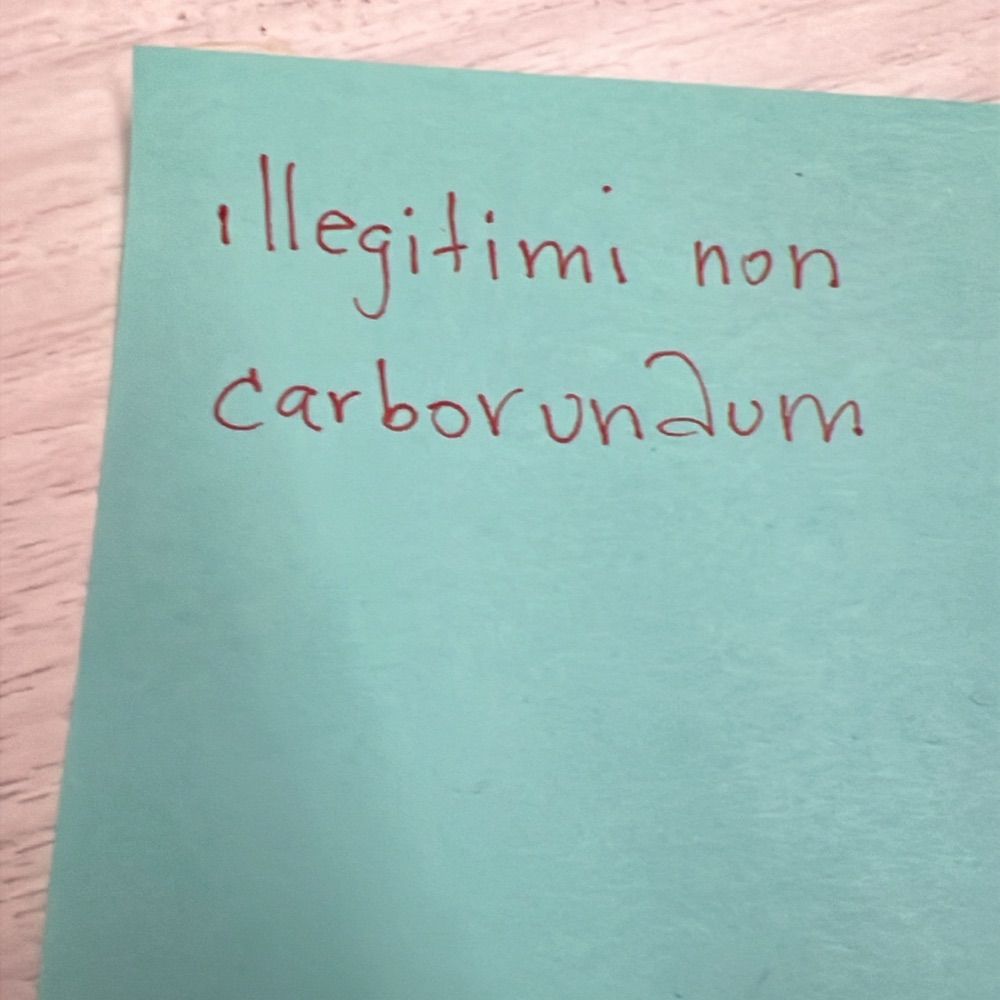 illegitimi non
carborundum